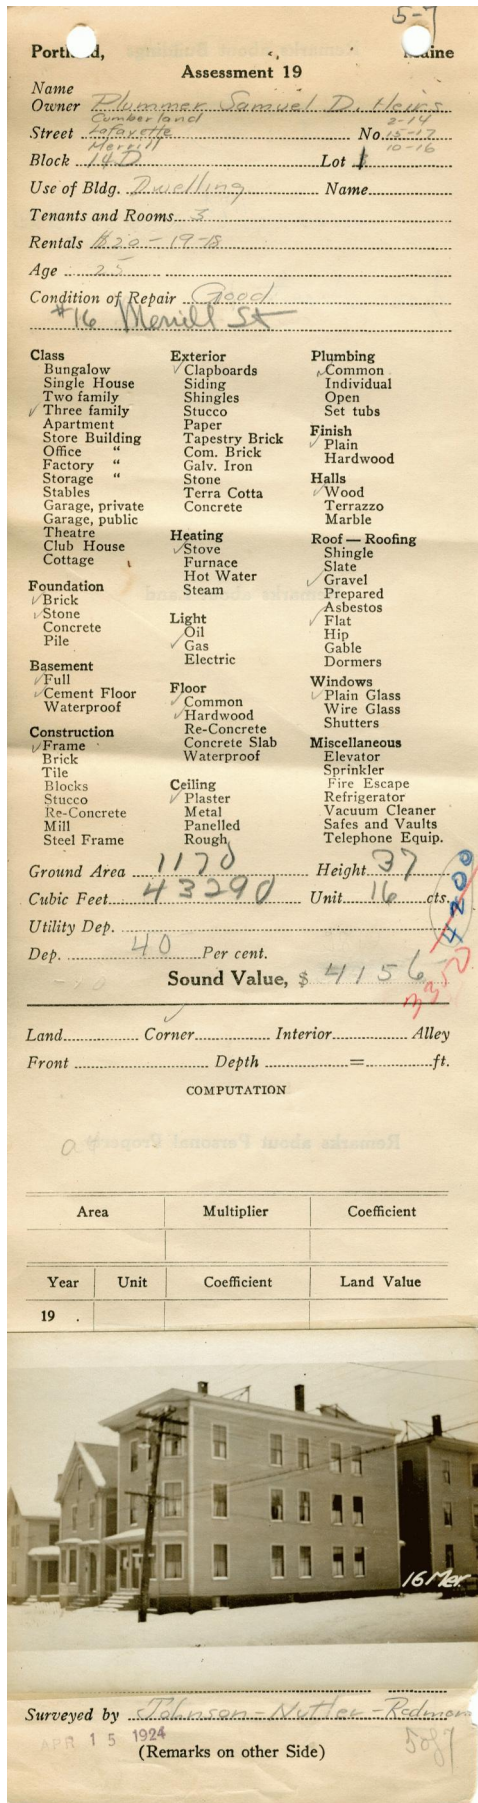 5-7
Portland, Maine
Assessment 19
Name
Owner Plummer Samuel D. Heirs
Cumberland 2-14
Street Lafayette No. 15-17
Merrill 10-16
Block 14D Lot 1
Use of Bldg. Dwelling Name
Tenants and Rooms 3
Rentals $20-19-18
Age 25
Condition of Repair Good
#16 Merrill St
Class
Bungalow
Single House
Two family
✓ Three family
Apartment
Store Building
Office "
Factory "
Storage "
Stables
Garage, private
Garage, public
Theatre
Club House
Cottage
Foundation
✓ Brick
✓ Stone
Concrete
Pile
Basement
✓ Full
✓ Cement Floor
Waterproof
Construction
✓ Frame
Brick
Tile
Blocks
Stucco
Re-Concrete
Mill
Steel Frame
Exterior
✓ Clapboards
Siding
Shingles
Stucco
Paper
Tapestry Brick
Com. Brick
Galv. Iron
Stone
Terra Cotta
Concrete
Heating
✓ Stove
Furnace
Hot Water
Steam
Light
✓ Oil
✓ Gas
Electric
Floor
✓ Common
✓ Hardwood
Re-Concrete
Concrete Slab
Waterproof
Ceiling
✓ Plaster
Metal
Panelled
Rough
Plumbing
✓ Common
Individual
Open
Set tubs
Finish
✓ Plain
Hardwood
Halls
✓ Wood
Terrazzo
Marble
Roof — Roofing
Shingle
Slate
✓ Gravel
Prepared
Asbestos
✓ Flat
Hip
Gable
Dormers
Windows
✓ Plain Glass
Wire Glass
Shutters
Miscellaneous
Elevator
Sprinkler
Fire Escape
Refrigerator
Vacuum Cleaner
Safes and Vaults
Telephone Equip.
Ground Area 1170 Height 37
Cubic Feet 43290 Unit 16 cts.
4200
Utility Dep.
Dep. 40 Per cent.
Sound Value, $ 4156
3350
Land Corner ✓ Interior Alley
Front Depth = ft.
COMPUTATION
Area Multiplier Coefficient
Year Unit Coefficient Land Value
19 .
16 Mer.
Surveyed by Johnson-Nutter-Redmon
APR 15 1924
5087
(Remarks on other Side)